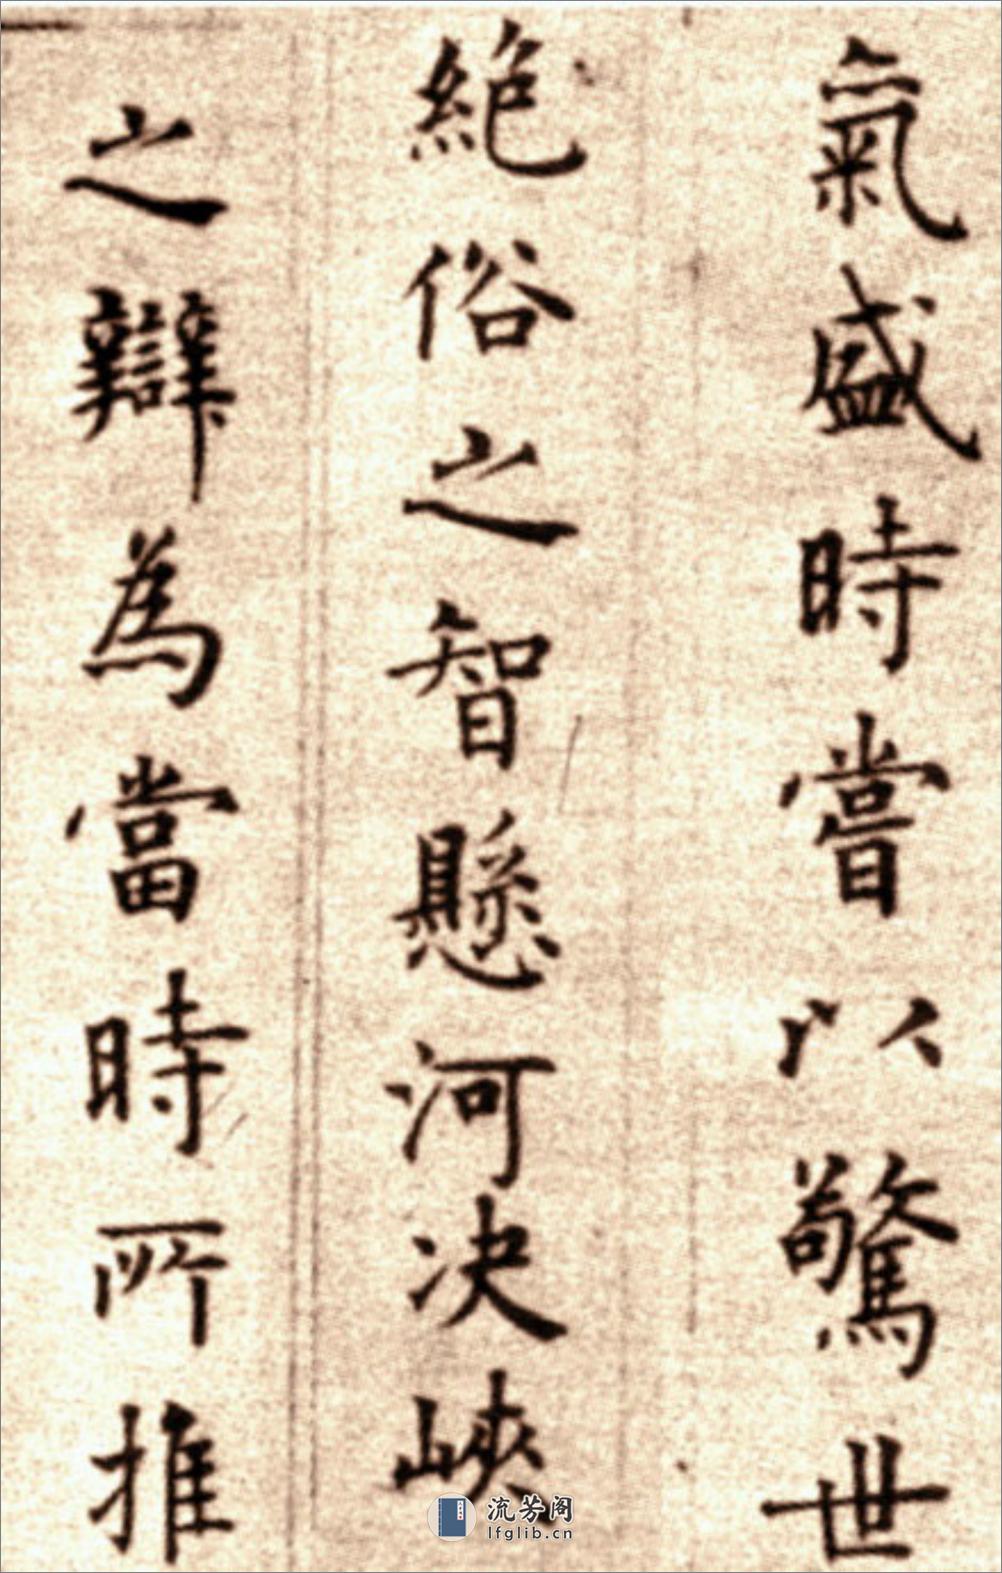 氣盛時嘗以驚世
絕俗之智懸河决峽
之辯為當時所推
流芳阁
lfglib.cn